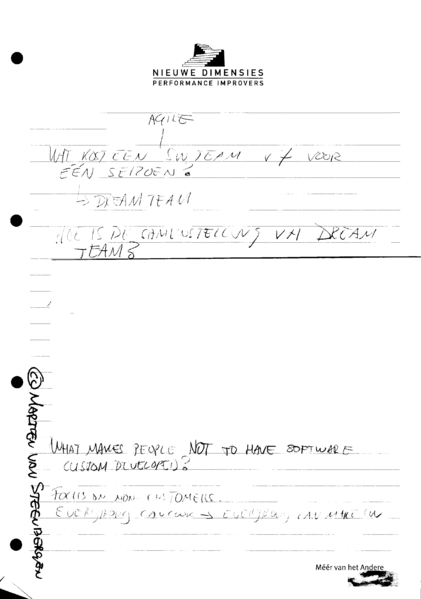 NIEUWE DIMENSIES
PERFORMANCE IMPROVERS
AGILE
WAT KOST EEN SW TEAM VOOR
ÉÉN SEIZOEN?
→ DREAM TEAM
HOE IS DE SAMENSTELLING VH DREAM
TEAM?
WHAT MAKES PEOPLE NOT TO HAVE SOFTWARE
CUSTOM DEVELOPED?
FOCUS ON NON CUSTOMERS
EVERYBODY →
Méér van het Andere
(C) MARTIEN VAN STEENBERGEN